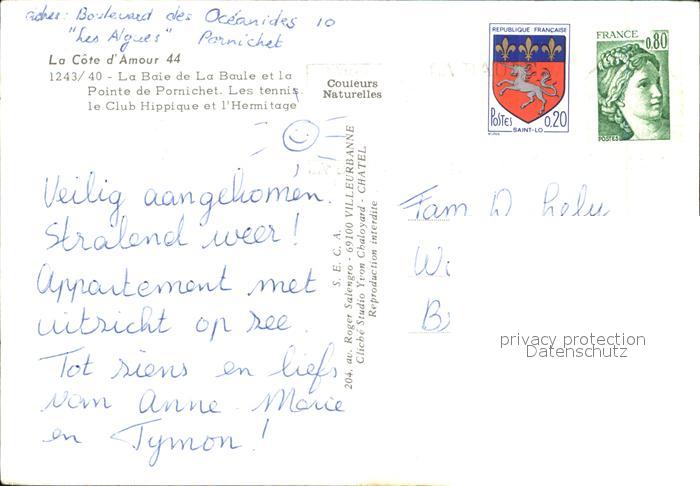 adres: Boulevard des Océanides 10
"Les Algues" Pornichet
La Côte d'Amour 44
1243/40 - La Baie de La Baule et la
Pointe de Pornichet. Les tennis
le Club Hippique et l'Hermitage
Couleurs
Naturelles
REPUBLIQUE FRANÇAISE
POSTES 0,20
SAINT-LO
FRANCE
0,80
POSTES
Veilig aangekomen.
Stralend weer!
Appartement met
uitzicht op zee.
Tot ziens en liefs
van Anne-Marie
en Tymon!
S. E. C. A.
204, av. Roger Salengro - 69100 VILLEURBANNE
Cliché Studio Yvon Chaloyard - CHATEL
Reproduction interdite
Fam D
Wi
B
privacy protection
Datenschutz